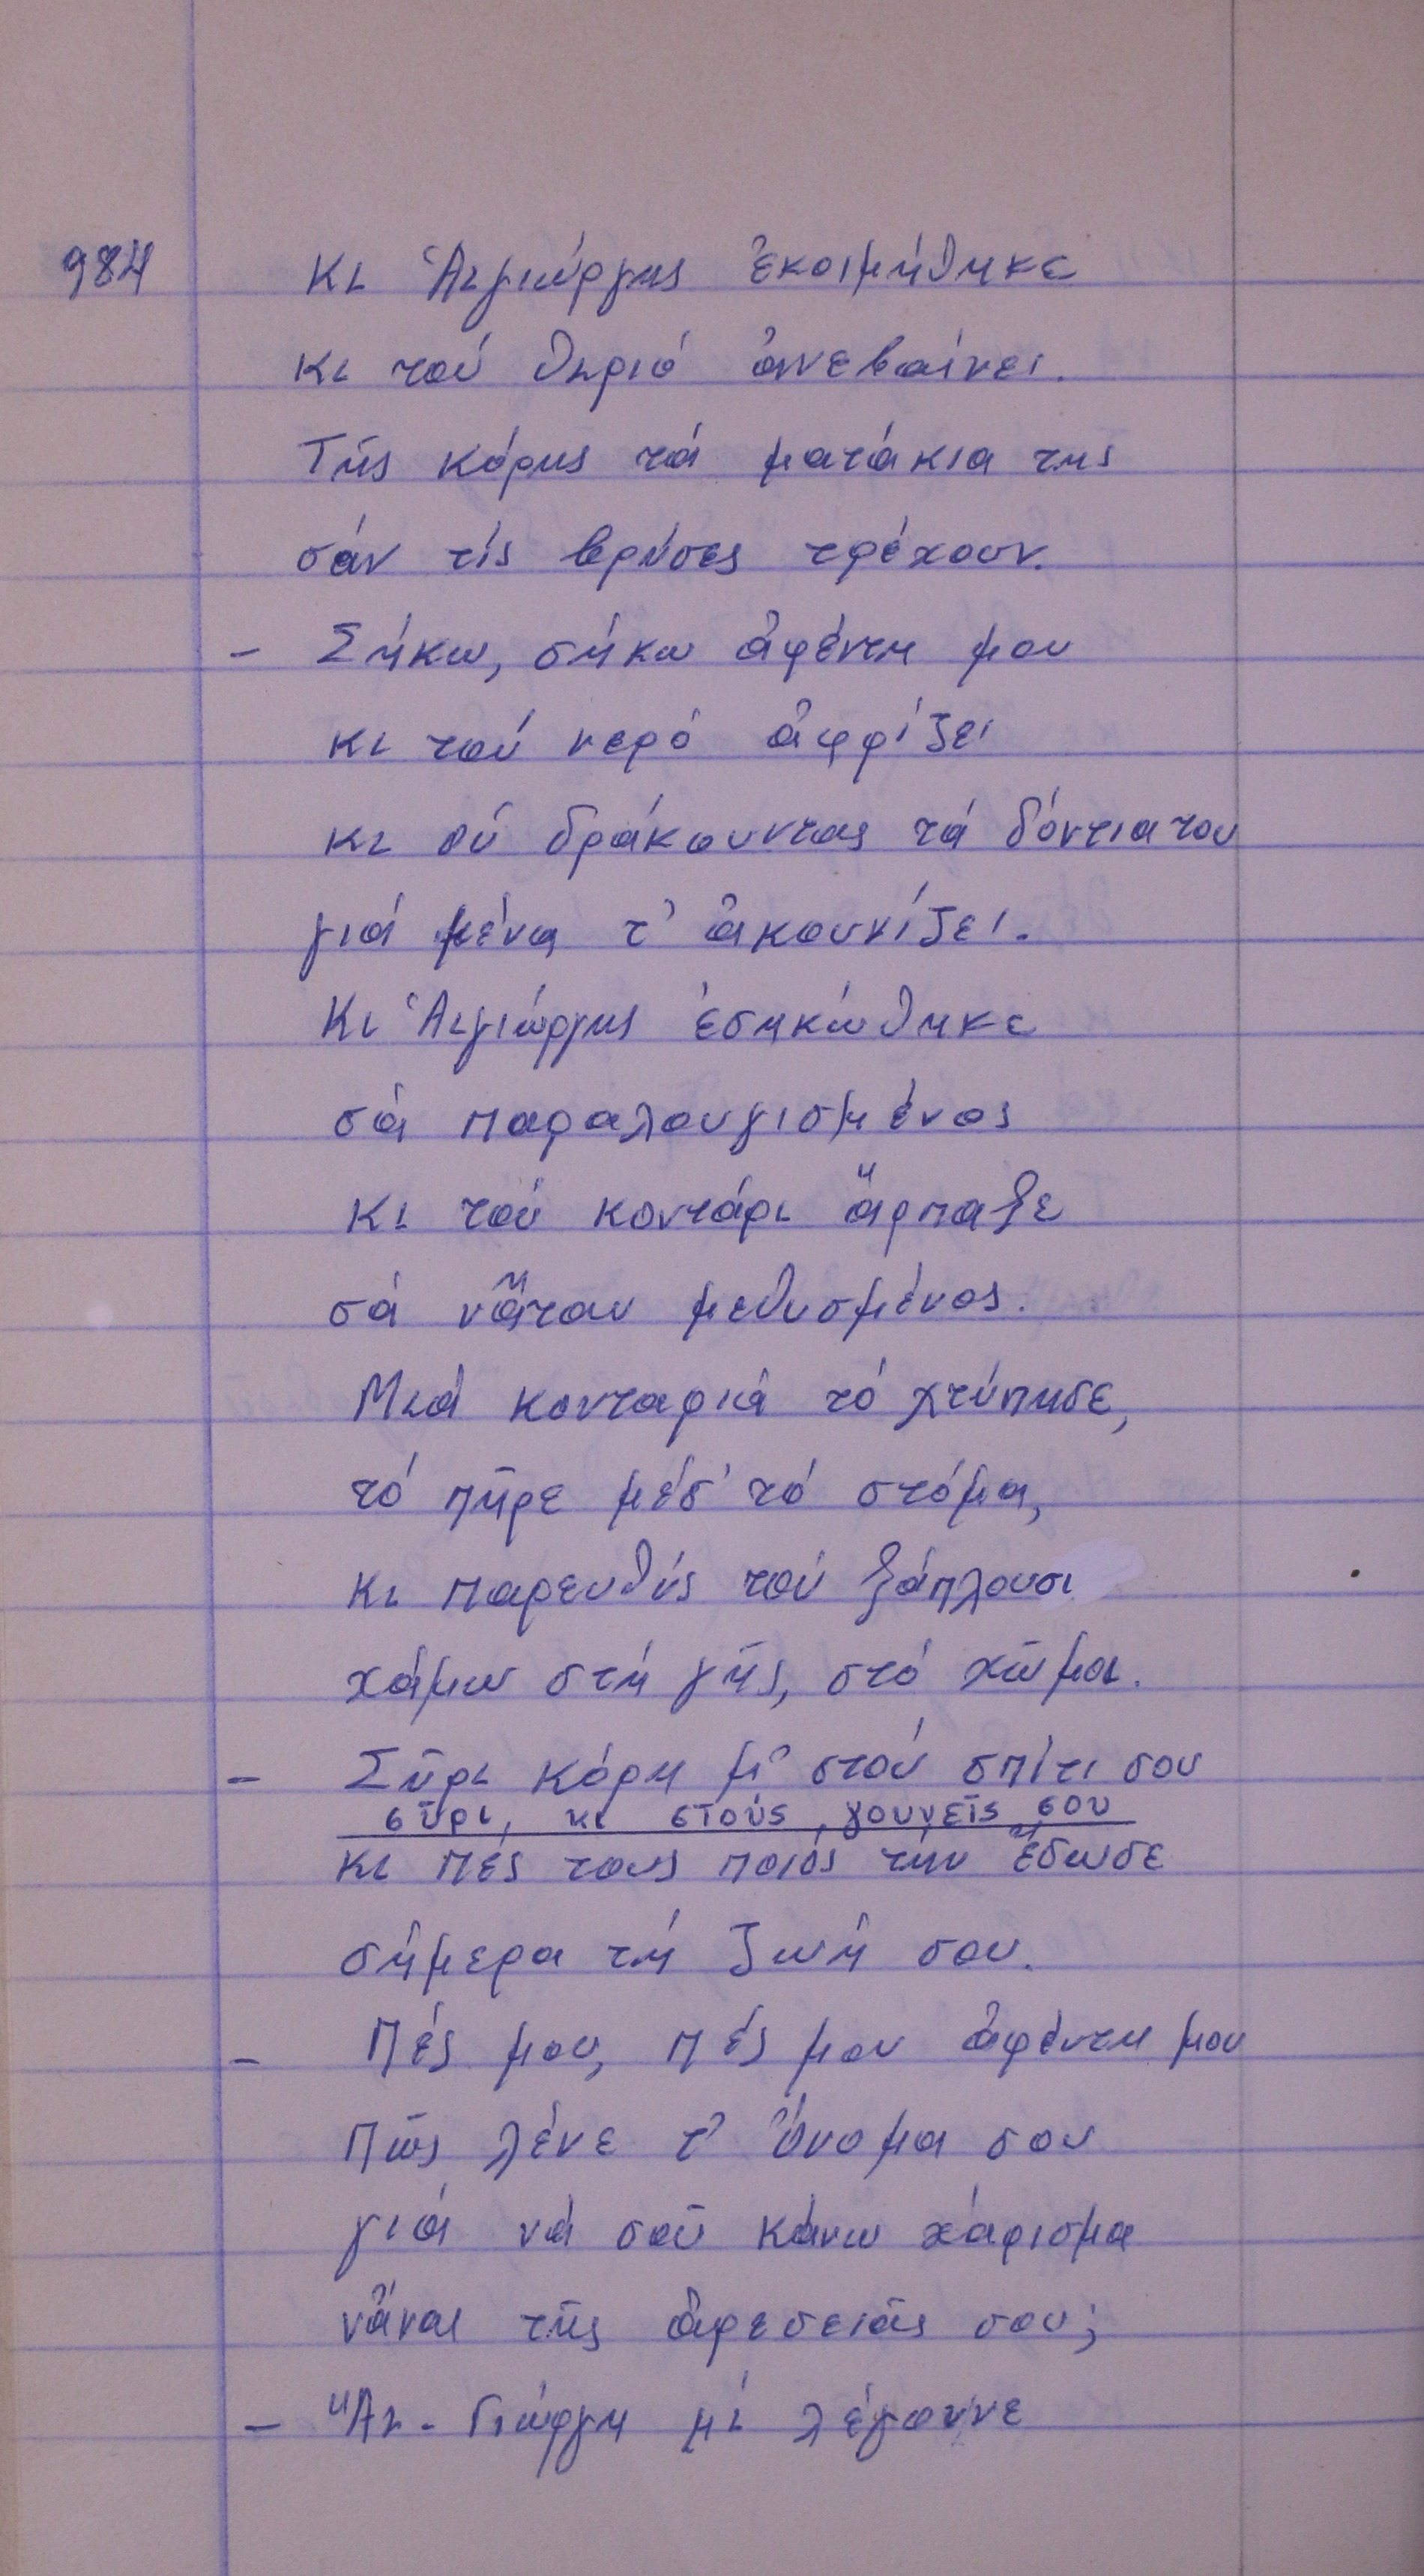 984 Κι Ἁιγιώργης ἐκοιμήθηκε
κι τού θηριό ἀνεβαίνει.
Τῆς κόρης τά ματάκια της
σάν τίς βρύσες τρέχουν.
- Σήκω, σήκω ἀφέντη μου
κι τού νερό ἀφρίζει
κι οὑ δράκουντας τά δόντια του
γιά μένα τ' ἀκουνίζει.
Κι Ἁιγιώργης ἐσηκώθηκε
σά παραλουγισμένος
κι τού κοντάρι ἅρπαξε
σά νἄταν μεθυσμένος.
Μιά κονταριά τό χτύπησε,
τό πῆρε μέσ' τό στόμα,
κι παρευθύς τού ξάπλουσι
χάμω στή γῆς, στό χῶμα.
- Σῦρι κόρη μ' στού σπίτι σου
σῦρι, κι στούς γουνεῖς σου
κι πές τους ποιός τήν ἔσωσε
σήμερα τή ζωή σου.
- Πές μου, πές μου ἀφέντη μου
πῶς λένε τ' ὄνομα σου
γιά νά σοῦ κάνω χάρισμα
νἆναι τῆς ἀρεσειᾶς σου;
- Ἅι - Γιώργη μί λέγουνε